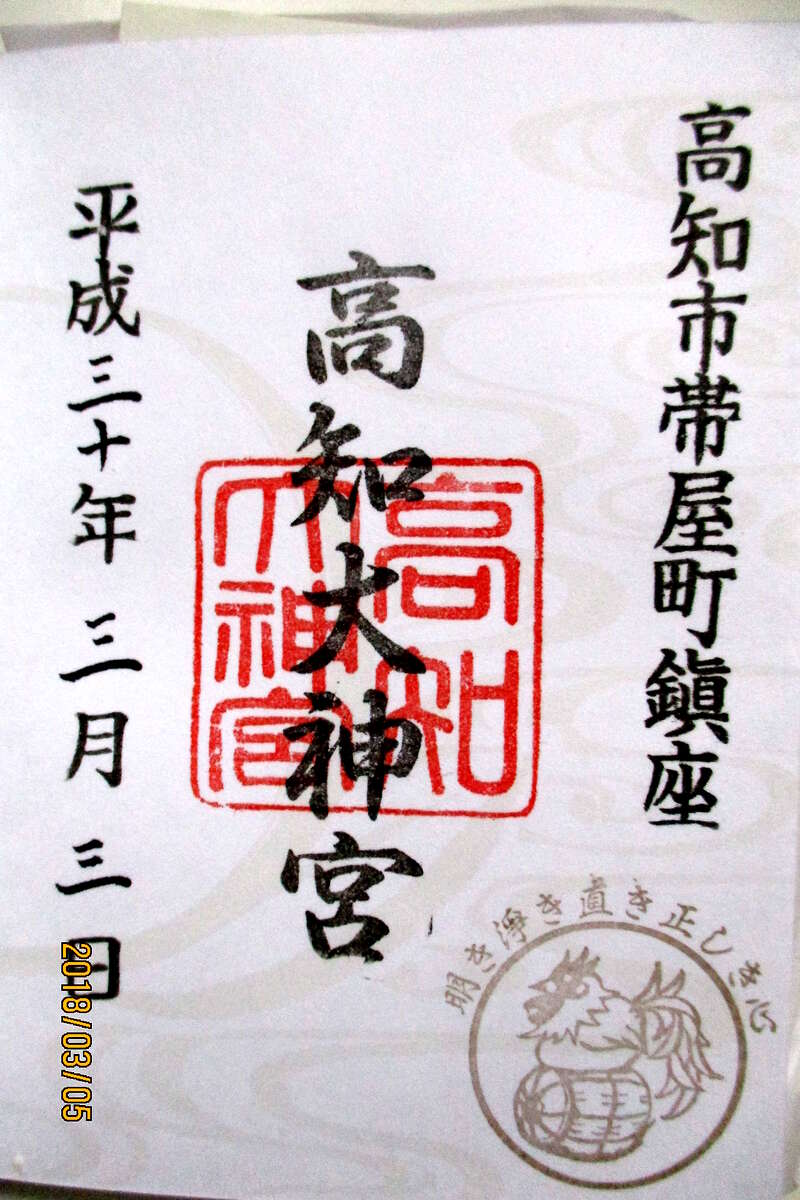 高知市帯屋町鎮座
高知大神宮
高知
大神宮
平成三十年 三月 三日
明き淨き直き正しき心
2018/03/05